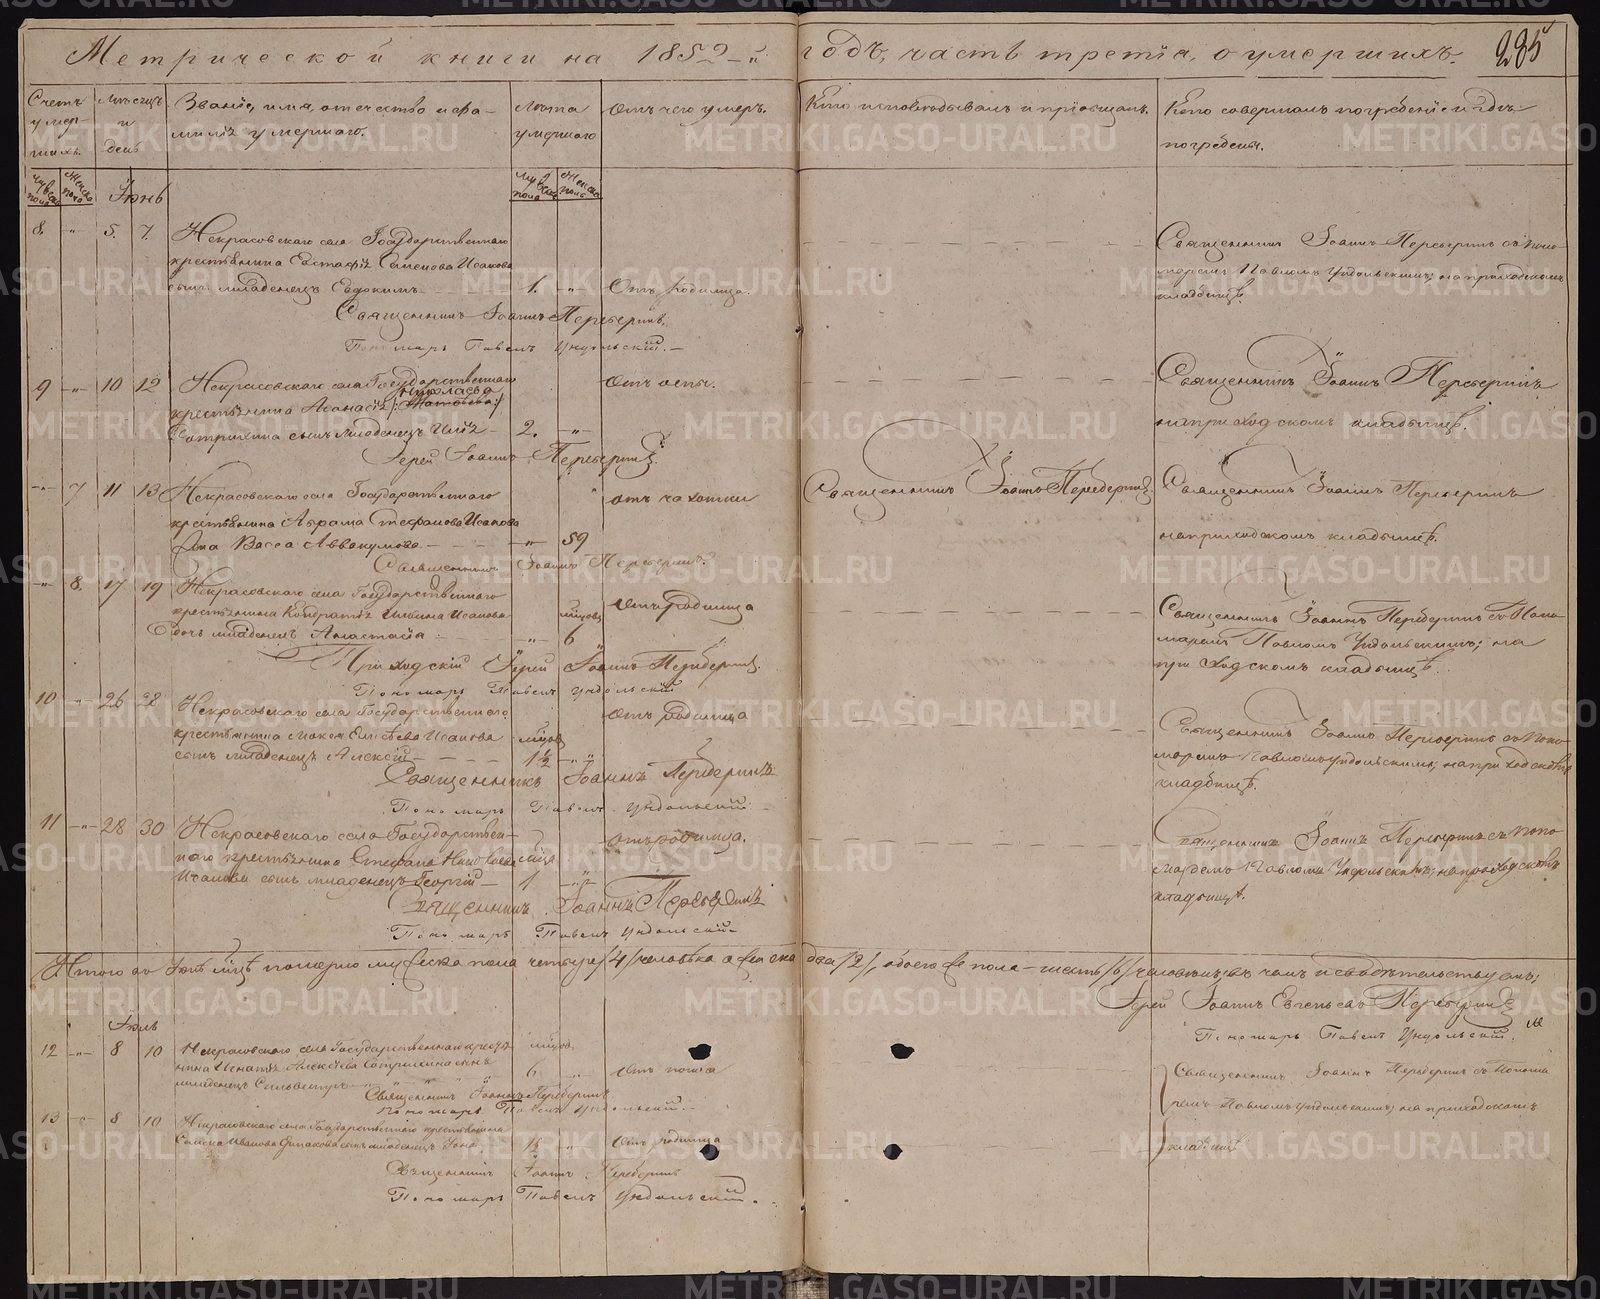 Метрической книги на 1852-й годъ, часть третія, о умершихъ.
285
Счетъ умер-шихъ.
Мѣсяцъ и день
Званіе, имя, отечество и фа-
милія умершаго.
Лѣта умершаго
Отъ чего умеръ.
Кто исповѣдывалъ и пріобщалъ.
Кто совершалъ погребеніе и гдѣ
погребены.
Мужеска пола
Женска пола
Іюнь
Мужеска пола
Женска пола
8. " 5. 7. Некрасовскаго села Государственнаго
крестьянина Евстафія Семенова Исакова
сынъ младенецъ Евдокимъ 1. " Отъ родимца.
Священникъ Іоаннъ Переберинъ съ поно-
маремъ Павломъ Ундольскимъ; на приходскомъ
кладбищѣ.
Священникъ Іоаннъ Переберинъ.
Пономарь Павелъ Ундольскій.
9 " 10 12 Некрасовскаго села Государственнаго
Николаева
крестьянина Аѳанасія
сынъ младенецъ Илія 2. " Отъ оспы.
Священникъ Іоаннъ Переберинъ
на приходскомъ кладбищѣ.
Іерей Іоаннъ Переберинъ.
" 7 11 13 Некрасовскаго села Государственнаго
крестьянина Абрама Стефанова Исакова
жена Васса Аввакумова " 59 отъ чахотки
Священникъ Іоаннъ Переберинъ
Священникъ Іоаннъ Переберинъ
на приходскомъ кладбищѣ.
Священникъ Іоаннъ Переберинъ.
" 8. 17 19 Некрасовскаго села Государственнаго
крестьянина Кондратія Исакова
дочь младенецъ Анастасія " 6 мѣсяцовъ Отъ родимца
Священникъ Іоаннъ Переберинъ съ Поно-
маремъ Павломъ Ундольскимъ; на
приходскомъ кладбищѣ.
Приходскій Іерей Іоаннъ Переберинъ.
Пономарь Павелъ Ундольскій
10 " 26 28 Некрасовскаго села Государственнаго
крестьянина Елисѣева Исакова
сынъ младенецъ Алексій 1½ " Отъ родимца
Священникъ Іоаннъ Переберинъ съ поно-
маремъ Павломъ Ундольскимъ; на приходскомъ
кладбищѣ.
Священникъ Іоаннъ Переберинъ
Пономарь Павелъ Ундольскій
11 " 28 30 Некрасовскаго села Государствен-
наго крестьянина Стефана
Исакова сынъ младенецъ Георгій 1 " отъ родимца.
Священникъ Іоаннъ Переберинъ съ поно-
маремъ Павломъ Ундольскимъ; на приходскомъ
кладбищѣ.
Священникъ Іоаннъ Переберинъ
Пономарь Павелъ Ундольскій
Итого во Іюнѣ мѣсяцѣ померло мужеска пола четыре /4/ человѣка а женска два /2/, обоего же пола – шесть /6/ человѣкъ, въ чемъ и свидѣтельствуемъ;
Іерей Іоаннъ Евгеньевъ Переберинъ
Пономарь Павелъ Ундольскій.
Іюль
12 " 8 10 Некрасовскаго села Государственнаго кресть-
янина Игнатія Алексѣева сынъ
младенецъ Сильвестръ 6 " Отъ поноса
Священникъ Іоаннъ Переберинъ съ Понома-
ремъ Павломъ Ундольскимъ; на приходскомъ
кладбищѣ
Священникъ Іоаннъ Переберинъ
Пономарь Павелъ Ундольскій.
13 " 8 10 Некрасовскаго села Государственнаго крестьянина
Иванова сынъ младенецъ 1½ " Отъ родимца
Священникъ Іоаннъ Переберинъ
Пономарь Павелъ Ундольскій.
METRIKI.GASO-URAL.RU